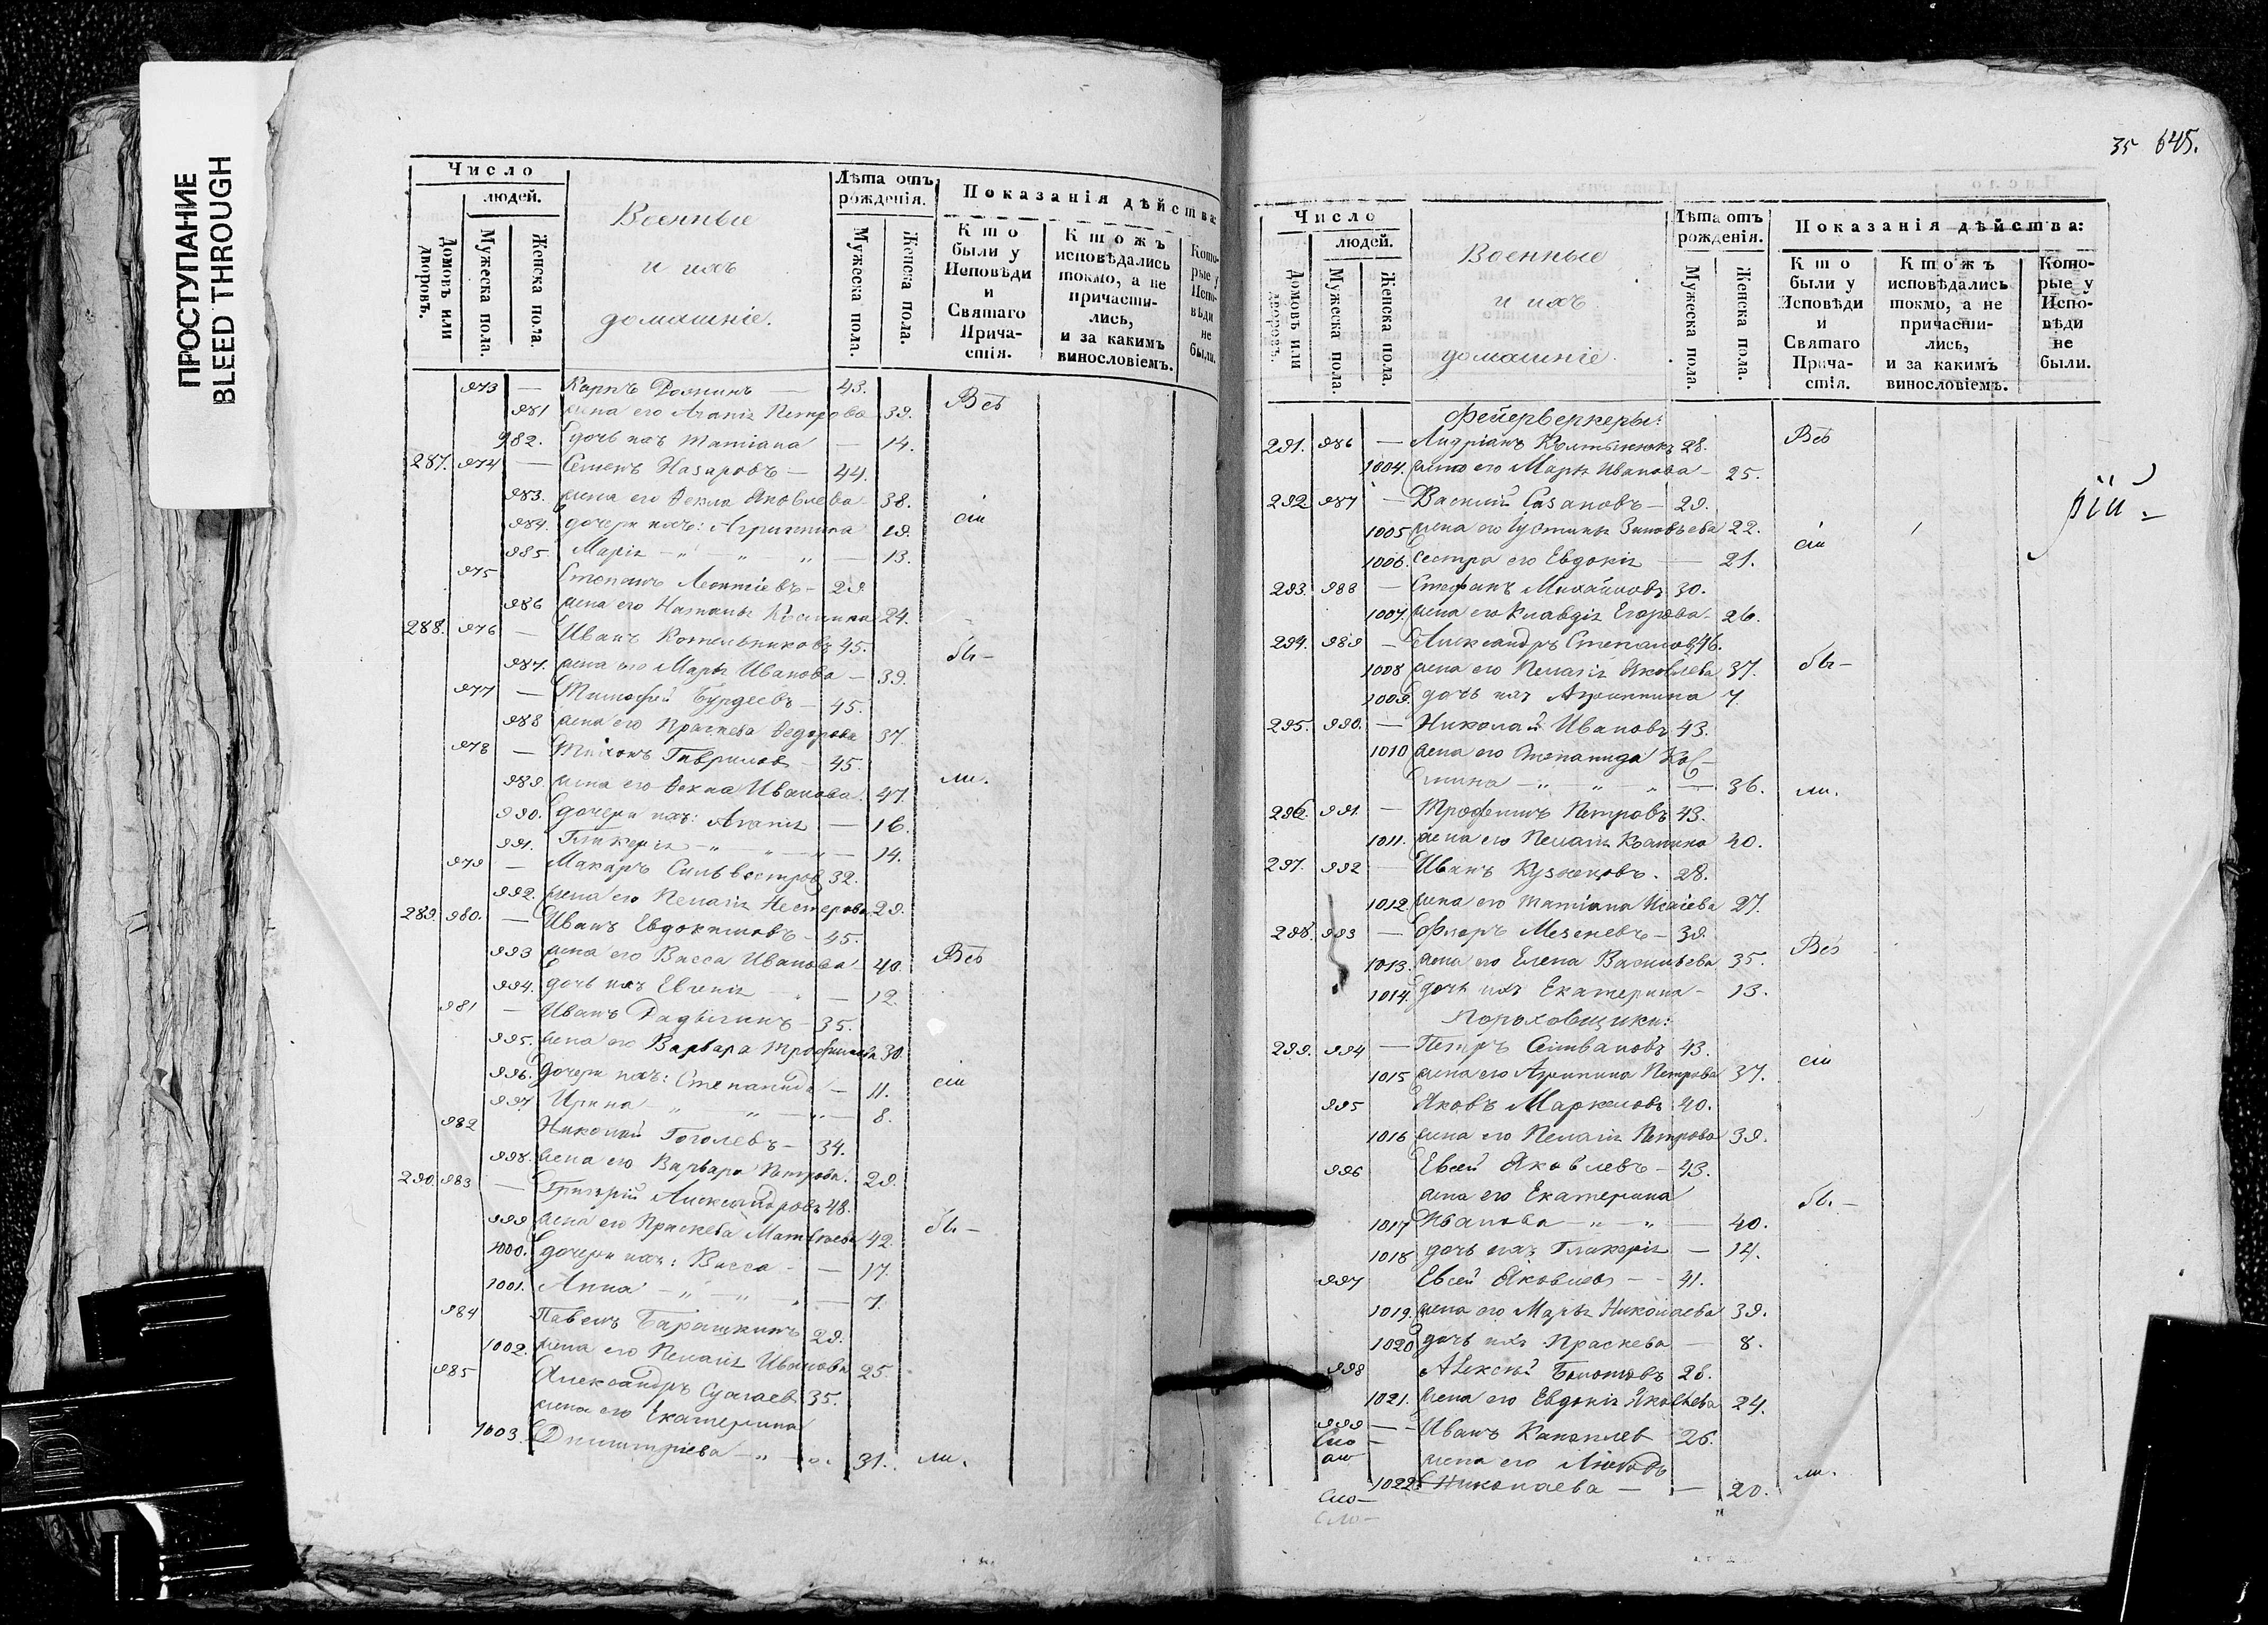 ПРОСТУПАНИЕ
BLEED THROUGH
Число
людей.
Домовъ или дворовъ.
Мужеска пола.
Женска пола.
Военные
и ихъ
домашніе.
Лѣта отъ рожденія.
Мужеска пола.
Женска пола.
Показанія дѣйства:
Кто были у Исповѣди и Святаго Причастія.
Ктожъ исповѣдались токмо, а не причастились, и за какимъ винословіемъ.
Которые у Исповѣди не были.
973 — Карпъ — 43. Всѣ
981 жена его Агапія Петрова 39.
982. дочь ихъ Татіана — 14.
287. 974 — Семенъ Назаровъ — 44.
983. жена его Ѳекла Яковлева 38.
984. дочери ихъ: Агрипина 19. сіи
985 Марія — " " " — 13.
975 Степанъ Леонтіевъ — 29.
986 жена его Наталья 24.
288. 976 — Иванъ Котельниковъ 45.
987. жена его Марья Иванова — 39. бы—
977 — Тимофей Бурдеевъ — 45.
988 жена его Праскева Ѳедорова 37.
978 — Тихонъ Гавриловъ — 45.
989. жена его Ѳекла Иванова. 47. ли.
990. дочери ихъ: Агапія — 16.
991. Гликерія — " — " — " — 14.
979 — Макаръ Сильвестровъ 32.
992. жена его Пелагія Нестерова 29.
289. 980. — Иванъ Евдокимовъ — 45.
993 жена его Васса Иванова 40. Всѣ
994. дочь ихъ Евгенія — 12.
981 — Иванъ Радыгинъ — 35.
995. жена его Варвара Трофимова 30.
996. дочери ихъ: Степанида — 11. сіи
997 Ирина — " — " — " — 8.
982 Николай Гоголевъ — 34.
998. жена его Варвара Петрова. 29.
290. 983 — Григорій Александровъ 48.
999 жена его Праскева Матвѣева 42. бы—
1000. дочери ихъ: Васса — — 17.
1001. Анна — " — " — 7.
984 Павелъ Барашкинъ 29.
1002. жена его Пелагія Иванова 25.
985 Александръ 35.
жена его Екатерина
1003. Дмитріева — " — " 31. ли.
35 645.
Число
людей.
Домовъ или дворовъ.
Мужеска пола.
Женска пола.
Военные
и ихъ
домашніе.
Лѣта отъ рожденія.
Мужеска пола.
Женска пола.
Показанія дѣйства:
Кто были у Исповѣди и Святаго Причастія.
Ктожъ исповѣдались токмо, а не причастились, и за какимъ винословіемъ.
Которые у Исповѣди не были.
Фейерверкеры:
291. 986 — Андріанъ 28. Всѣ
1004. жена его Марья Иванова — 25.
292 987 — Василій Сазановъ — 29.
рій
1005 жена его Устинья Зиновьева 22.
1006. сестра его Евдокія — 21. сіи
293. 988 — Стефанъ Михайловъ 30.
1007. жена его Клавдія Егорова — 26.
294. 989 — Александръ Степановъ 46.
1008 жена его Пелагія Яковлева 37. бы—
1009. дочь ихъ Агрипина 7.
295. 990. — Николай Ивановъ 43.
1010 жена его Степанида Кос—
мина — " — " — " — 36. ли.
296. 991. — Трофимъ Петровъ 43.
1011. жена его Пелагія 40.
297. 992 — Иванъ Кузнецовъ. 28.
1012. жена его Татіана Исаіева 27.
298. 993 — Флоръ Мезеневъ — 39.
1013. жена его Елена Васильева 35. Всѣ
1014. дочь ихъ Екатерина — 13.
Пороховщики:
299. 994 — Петръ Селивановъ 43.
1015 жена его Агрипина Петрова 37. сіи
995 Яковъ Маркеловъ 40.
1016 жена его Пелагія Петрова 39.
996 Евсей Яковлевъ — 43.
жена его Екатерина
1017 Иванова — " — " — 40. бы.—
1018 дочь ихъ Гликерія — 14.
997 Евсей Яковлевъ — 41.
1019. жена его Марья Николаева 39.
1020 дочь ихъ Праскева — 8.
998 Алексѣй Болотовъ 28.
1021. жена его Евдокія Яковлева 24.
999 — Иванъ Коноплев 26.
жена его
1022. Николаева — — 20. ли.